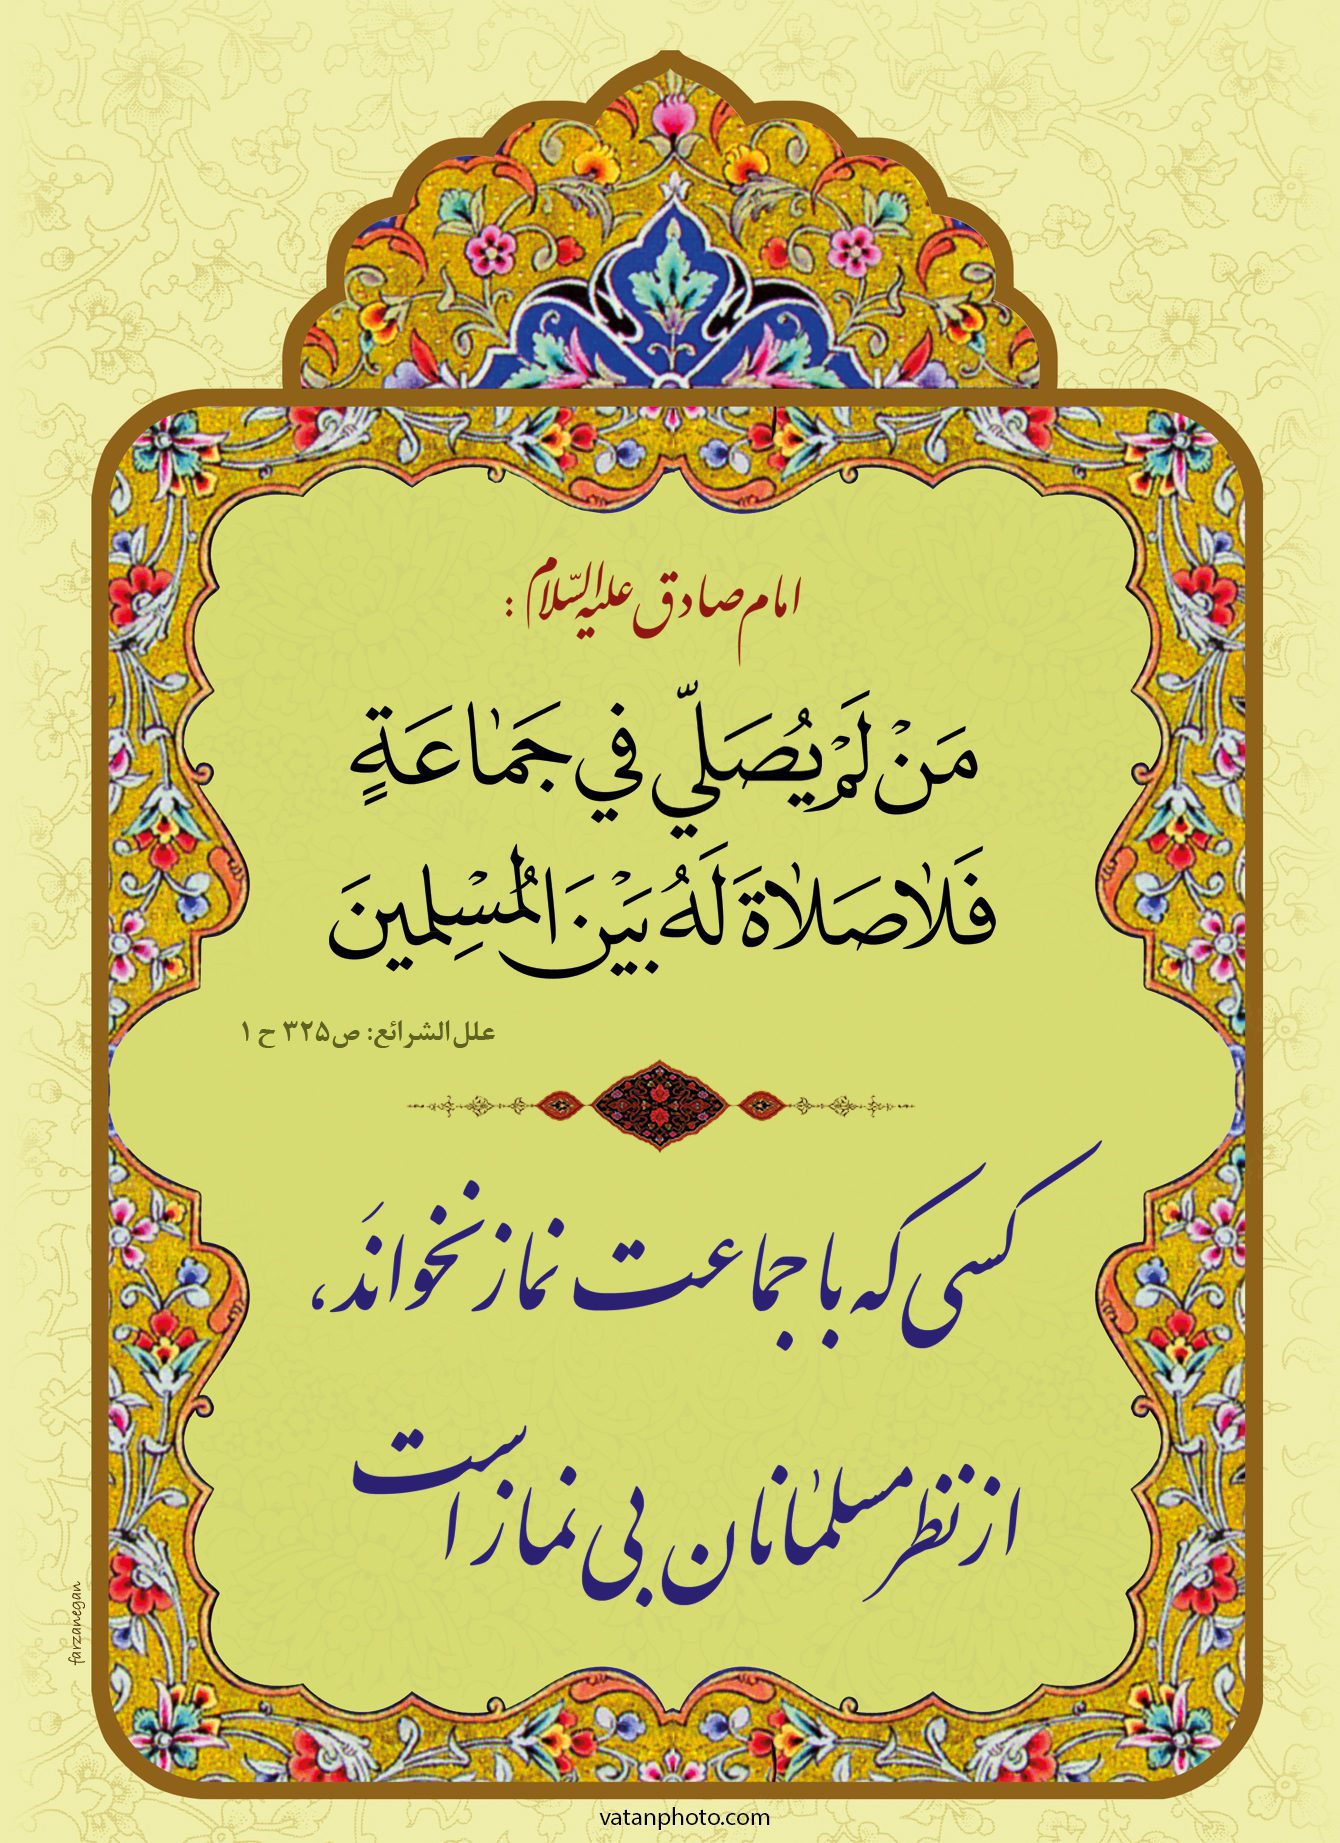 امام صادق علیه السّلام :
مَنْ لَمْ يُصَلّي في جَمٰاعَةٍ
فَلٰا صَلٰاةَ لَهُ بَيْنَ الْمُسْلِمينَ
علل الشرائع: ص۳۲۵ ح ۱
کسی که با جماعت نماز نخوانَد،
از نظر مسلمٰانان بی نماز است
farzanegan
vatanphoto.com